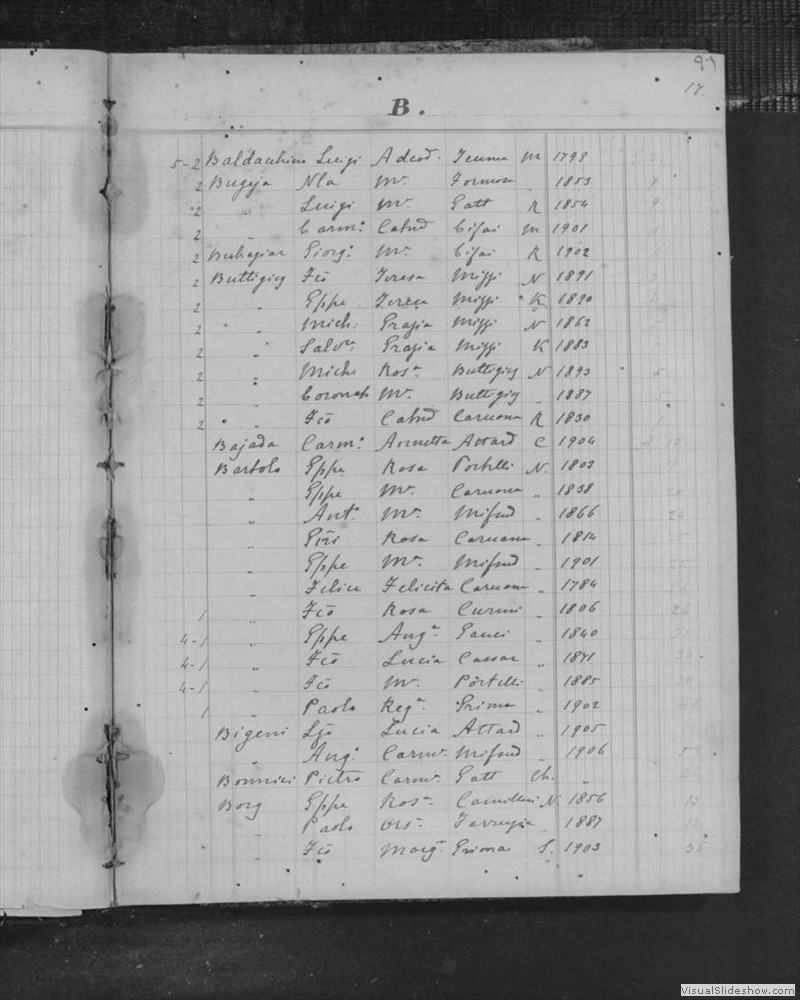 17.
B.
5-2 Baldacchino Luigi Adeod. M 1799
2 Bugeja Nla Mª Formosa " 1853
2 " Luigi Mª Gatt K 1854
2 " Carmº Catnd Cifai M 1901
2 Buhagiar Giorgº Mª Cifai K 1902
2 Buttigieg Fcō Teresa Mizzi N 1891
2 " Gppe Teresa Mizzi K 1890
2 " Mich: Grazia Mizzi N 1862
2 " Salvre Grazia Mizzi K 1883
2 " Michl Rosª Buttigieg N 1893
2 " Coronato Mª Buttigieg " 1887
2 " Fcō Catnd Caruana K 1830
Bajada Carmº Annetta Attard C 1904
Bartolo Gppe Rosa Portelli N. 1803
" Gppe Mª Caruana " 1838
" Antº Mª Mifsud " 1866
" Rosa Caruana " 1814
" Gppe Mª Mifsud " 1901
" Felice Felicita Caruana " 1784
1 " Fcō Rosa Curmi " 1806
4-1 " Gppe Angª Gauci " 1840
4-1 " Fcō Lucia Cassar "
4-1 " Fcō Mª Portelli " 1885
1 " Paolo Regª Grima " 1902
Bigeni Lucia Attard " 1905
" Angº Carmª Mifsud " 1906
Bonnici Pietro Carmª Gatt Ch. "
Borg Gppe Rosª Camilleri N. 1856
" Paolo Orsª Farrugia " 1887
" Fcō Margª Grima S. 1903
VisualSlideshow.com